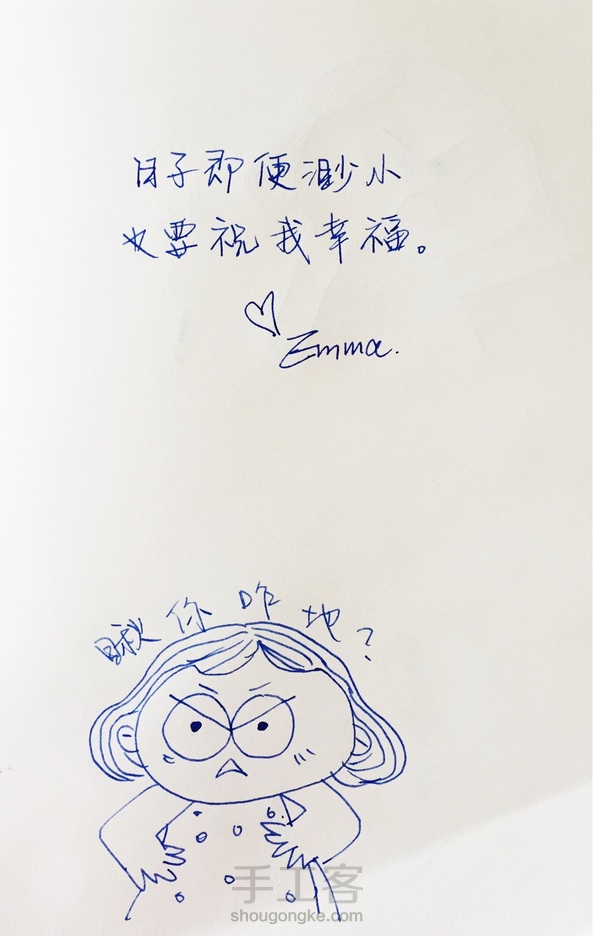 日子即便渺小
也要祝我幸福。
Emma.
瞅你咋地?
手工客
shougongke.com